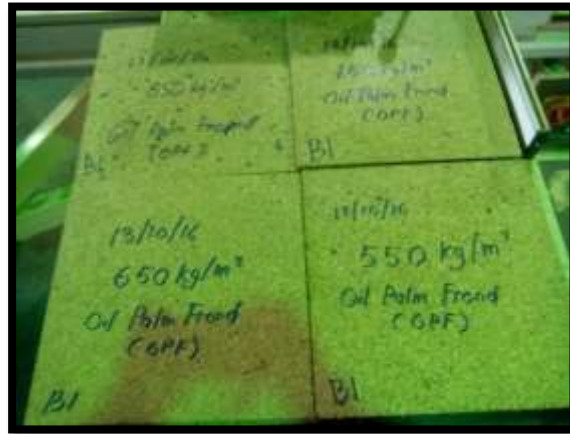 550 kg/m³
Oil Palm Frond
(OPF)
B1
Oil Palm Frond
(OPF)
B1
13/10/16
650 kg/m³
Oil Palm Frond
(OPF)
B1
13/10/16
550 kg/m³
Oil Palm Frond
(OPF)
B1